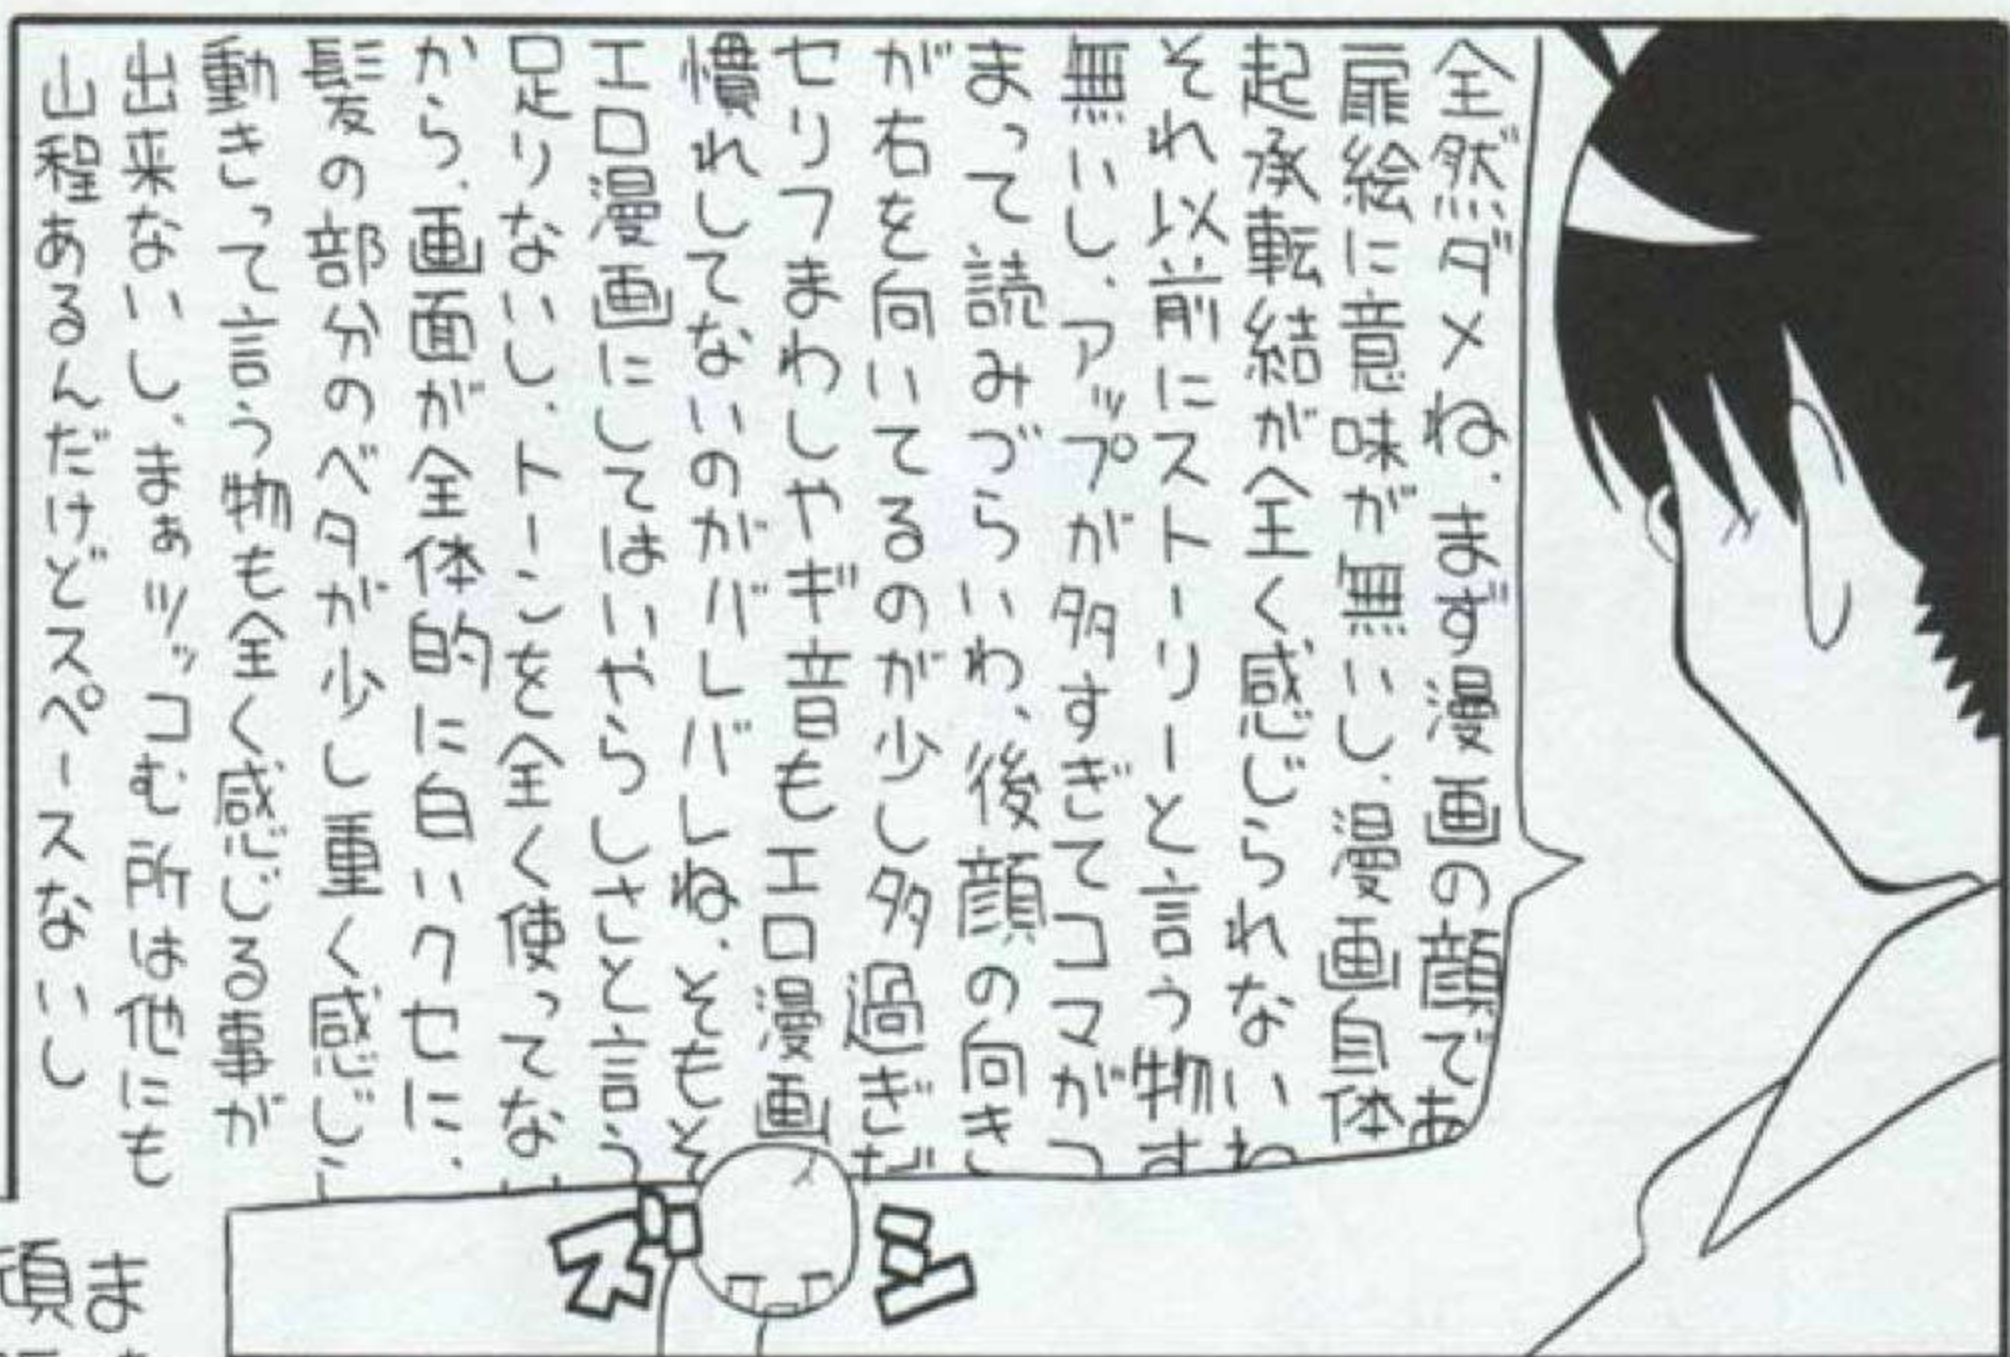 全然ダメね、まず漫画の顔であ
扉絵に意味が無いし、漫画自体
起承転結が全く感じられないわ
それ以前にストーリーと言う物す
無いし、アップが多すぎてコマがつ
まって読みづらいわ、後顔の向き
が右を向いてるのが少し多過ぎだ
セリフまわしやギ音もエロ漫画
慣れしてないのがバレバレね、そもそ
エロ漫画にしてはいやらしさと言う
足りないし、トーンを全く使ってない
から、画面が全体的に白いクセに、
髪の部分のベタが少し重く感じ
動きって言う物も全く感じる事が
出来ないし、まぁツッコむ所は他にも
山程あるんだけどスペースないし
ズーン
ま
頃